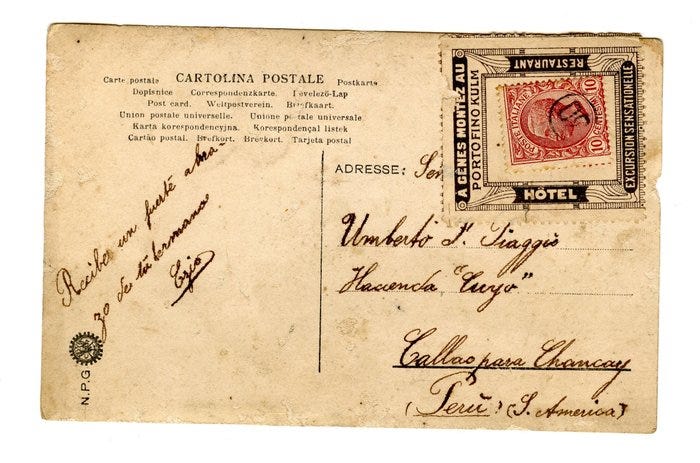 Carte postale CARTOLINA POSTALE Postkarte
Dopisnice Correspondenzkarte. Levelező-Lap
Post card. Weltpostverein. Briefkaart.
Union postale universelle. Unione postale universale
Karta korespondencyjna. Korespondenčal listek
Cartão postal. Brefkort. Brevkort. Tarjeta postal
Recibe un fuerte abra-
zo de tu hermano
Ezio
N.P.G.
A GÊNES MONTEZ AU
PORTOFINO KULM
RESTAURANT
EXCURSION SENSATIONELLE
HÔTEL
POSTE ITALIANE
10
10
ADRESSE: Señ
Umberto F. Piaggio
Hacienda "Cuyo"
Callao para Chancay
(Perú) (S. America)